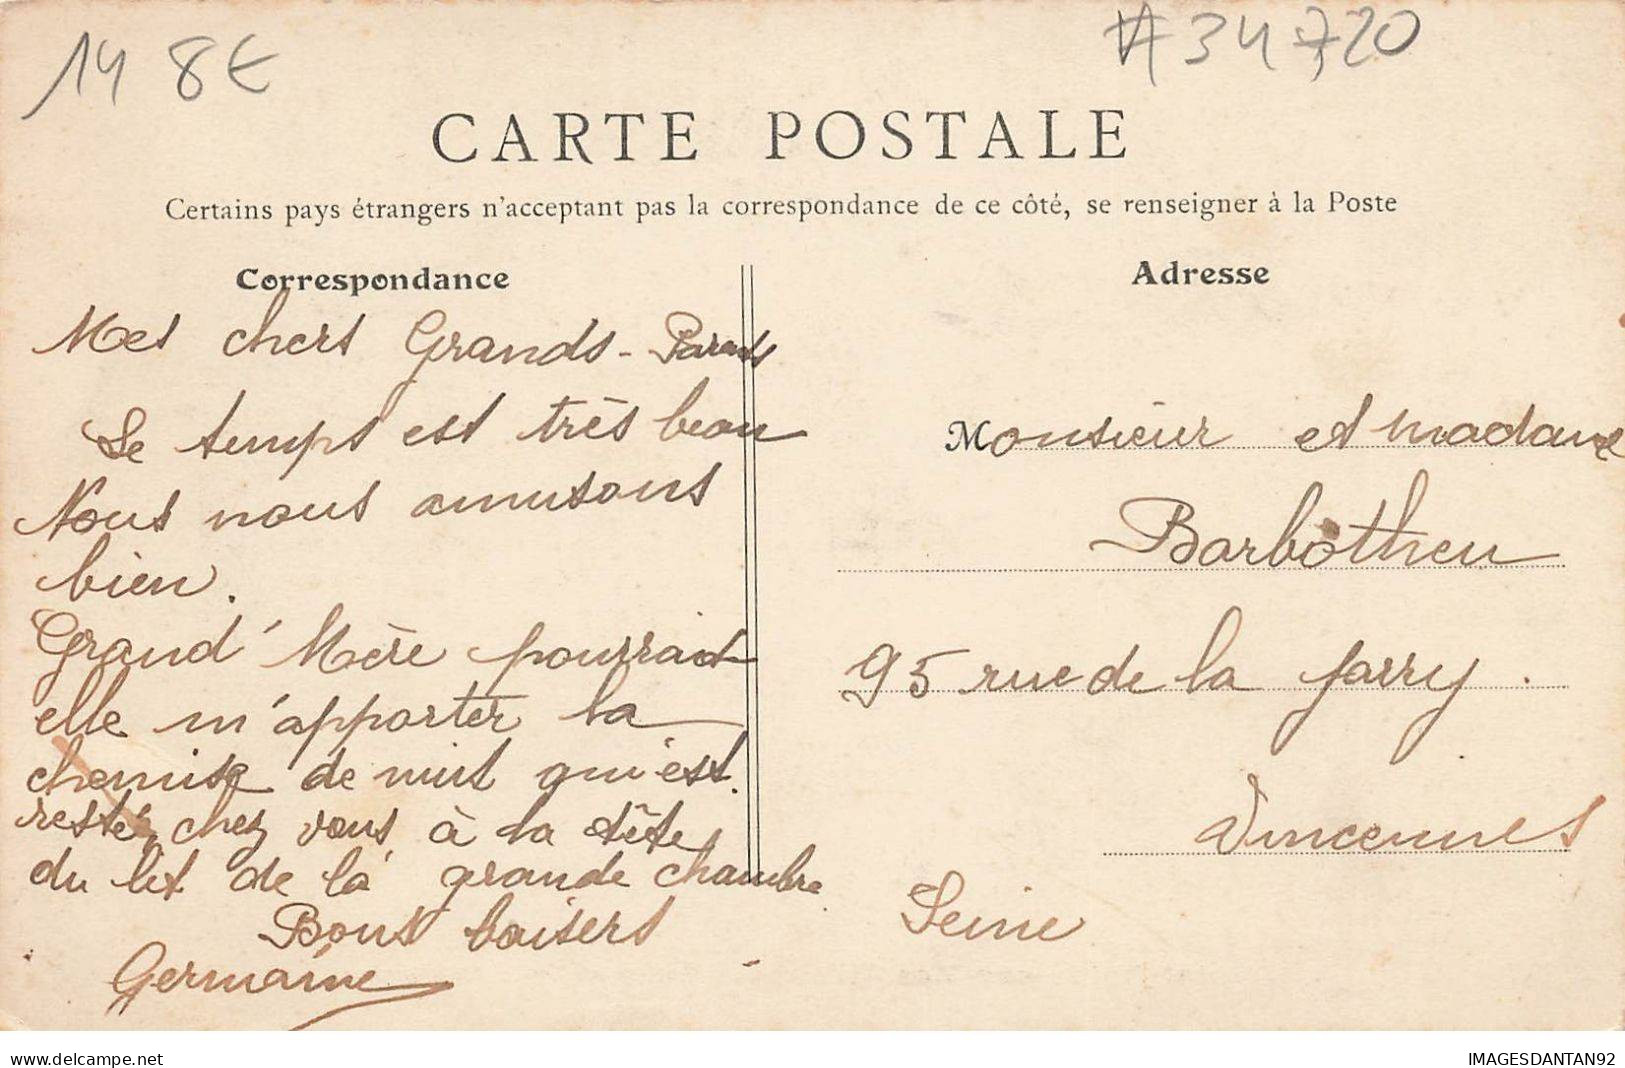 14 8€
#34720
CARTE POSTALE
Certains pays étrangers n'acceptent pas la correspondance de ce côté, se renseigner à la Poste
Correspondance
Mes chers Grands-Parents
Le temps est très beau
Nous nous amusons
bien.
Grand'Mère pourrait
elle m'apporter la
chemise de nuit qui est
resté chez vous à la tête
du lit de la grande chambre
Bons baisers
Germaine
Adresse
Monsieur et madame
Barbotheu
95 rue de la jarry.
Vincennes
Seine
www.delcampe.net
IMAGESDANTAN92